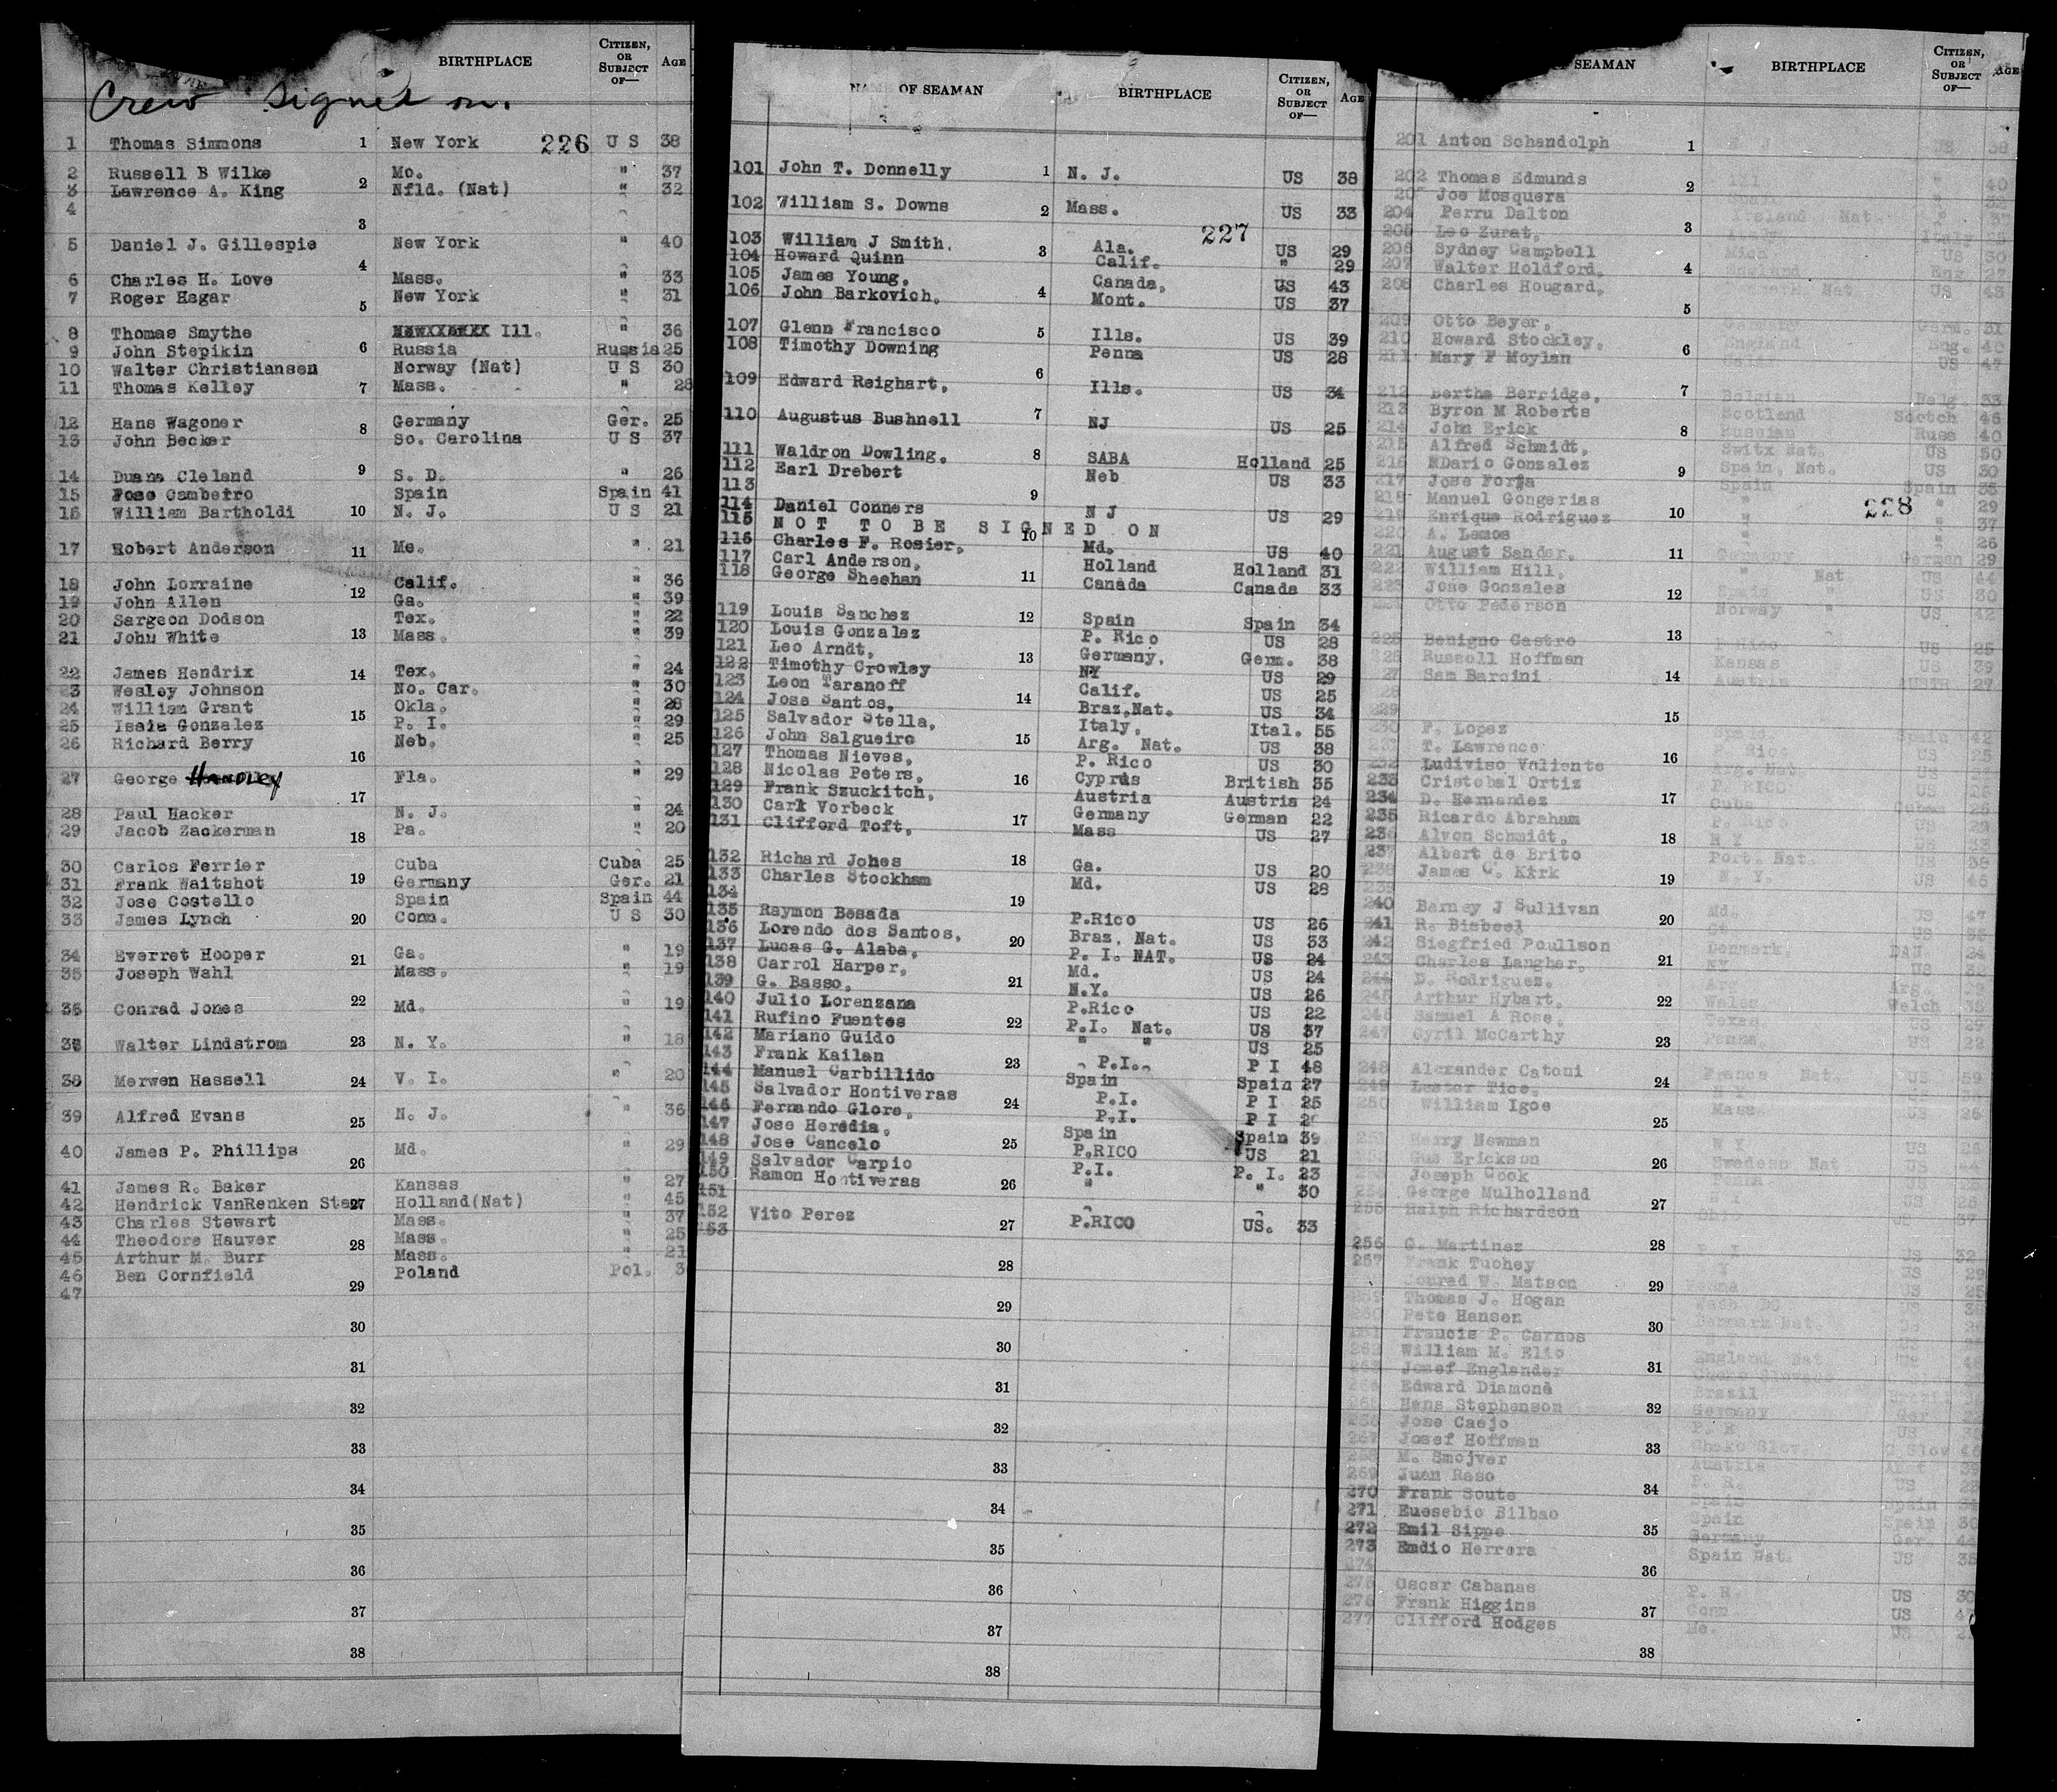 BIRTHPLACE CITIZEN, OR SUBJECT OF— AGE
Crew Signed on.
1 Thomas Simmons 1 New York 226 U S 38
2 Russell B Wilke Mo. " 37
3 Lawrence A. King 2 Nfld. (Nat) " 32
4
3
5 Daniel J. Gillespie New York " 40
4
6 Charles H. Love Mass. " 33
7 Roger Hagar 5 New York " 31
8 Thomas Smythe Ill. " 36
9 John Stepikin 6 Russia Russia 25
10 Walter Christiansen Norway (Nat) U S 30
11 Thomas Kelley 7 Mass. " 28
12 Hans Wagoner Germany Ger. 25
13 John Becker 8 So. Carolina U S 37
14 Duane Cleland 9 S. D. " 26
15 Jose Cambeiro Spain Spain 41
16 William Bartholdi 10 N. J. U S 21
17 Robert Anderson 11 Me. " 21
18 John Lorraine 12 Calif. " 36
19 John Allen Ga. " 39
20 Sargeon Dodson Tex. " 22
21 John White 13 Mass. " 39
22 James Hendrix 14 Tex. " 24
23 Wesley Johnson No. Car. " 30
24 William Grant 15 Okla. " 28
25 Isaia Gonzalez P. I. " 29
26 Richard Berry Neb. " 25
16
27 George Handley Fla. " 29
17
28 Paul Hacker N. J. " 24
29 Jacob Zackerman 18 Pa. " 20
30 Carlos Ferrier Cuba Cuba 25
31 Frank Waitshot 19 Germany Ger. 21
32 Jose Costello Spain Spain 44
33 James Lynch 20 Conn. U S 30
34 Everret Hooper 21 Ga. " 19
35 Joseph Wahl Mass. " 19
36 Conrad Jones 22 Md. " 19
37 Walter Lindstrom 23 N. Y. " 18
38 Merwen Hassell 24 V. I. " 20
39 Alfred Evans 25 N. J. " 36
40 James P. Phillips 26 Md. " 29
41 James R. Baker Kansas " 27
42 Hendrick VanRenken Stam 27 Holland(Nat) " 45
43 Charles Stewart Mass. " 37
44 Theodore Hauver 28 Mass. " 25
45 Arthur M. Burr Mass. " 21
46 Ben Cornfield 29 Poland Pol. 3
47
30
31
32
33
34
35
36
37
38
NAME OF SEAMAN BIRTHPLACE CITIZEN, OR SUBJECT OF— AGE
101 John T. Donnelly 1 N. J. US 38
102 William S. Downs 2 Mass. US 33
227
103 William J Smith. 3 Ala. US 29
104 Howard Quinn Calif. " 29
105 James Young, Canada, US 43
106 John Barkovich. 4 Mont. US 37
107 Glenn Francisco 5 Ills. US 39
108 Timothy Downing Penna US 28
109 Edward Reighart, 6 Ills. US 34
110 Augustus Bushnell 7 NJ US 25
111 Waldron Dowling. 8 SABA Holland 25
112 Earl Drebert Neb US 33
113
9
114 Daniel Conners N J US 29
115 NOT TO BE SIGNED ON
116 Charles F. Rosier, 10 Md. US 40
117 Carl Anderson, Holland Holland 31
118 George Sheehan 11 Canada Canada 33
119 Louis Sanchez 12 Spain Spain 34
120 Louis Gonzalez P. Rico US 28
121 Leo Arndt, 13 Germany, Germ. 38
122 Timothy Crowley NY US 29
123 Leon Taranoff Calif. US 25
124 Jose Santos, 14 Braz.Nat. US 34
125 Salvador Stella, Italy, Ital. 55
126 John Salgueiro 15 Arg. Nat. US 38
127 Thomas Nieves, P. Rico US 30
128 Nicolas Peters, 16 Cyprus British 35
129 Frank Szuckitch, Austria Austria 24
130 Carl Vorbeck Germany German 22
131 Clifford Toft, 17 Mass US 27
132 Richard Jones 18 Ga. US 20
133 Charles Stockham Md. US 28
134 19
135 Raymon Besada P.Rico US 26
136 Lorendo dos Santos, 20 Braz. Nat. US 33
137 Lucas G. Alaba, P. I. NAT. US 24
138 Carrol Harper, Md. US 24
139 G. Basso, 21 N.Y. US 26
140 Julio Lorenzana P.Rico US 22
141 Rufino Fuentes 22 P.I. Nat. US 37
142 Mariano Guido " " US 25
143 Frank Kailan 23 P.I. P I 48
144 Manuel Carbillido Spain Spain 27
145 Salvador Hontiveras P.I. P I 25
146 Fernando Glore, 24 P.I. P I
147 Jose Heredia, Spain Spain 39
148 Jose Cancelo 25 P.RICO US 21
149 Salvador Carpio P.I. P. I. 23
150 Ramon Hontiveras 26 " " 30
151
152 Vito Perez 27 P.RICO US. 33
153
28
29
30
31
32
33
34
35
36
37
38
SEAMAN BIRTHPLACE CITIZEN, OR SUBJECT OF— AGE
201 Anton Schandolph 1 US 38
202 Thomas Edmunds 2 Ill " 40
Joe Mosquera "
204 Perru Dalton Nat. "
205 Leo Zurat, 3 Italy
206 Sydney Campbell US 30
207 Walter Holdford, 4 England Eng 27
208 Charles Hougard, Nat US 43
5
209 Otto Beyer, Germany Germ. 31
210 Howard Stockley, 6 England Eng. 40
211 Mary F Moylan US 47
212 Bertha Berridge, 7 Belgian Belg. 33
213 Byron M Roberts Scotland Scotch 46
214 John Erick 8 Russian Russ 40
215 Alfred Schmidt, Switz Nat. US 50
216 Dario Gonzalez 9 Spain, Nat. US 30
217 Jose Forja Spain Spain 35
218 Manuel Gongerias " 228 " 29
219 Enrique Rodriguez 10 " " 37
220 A. Lemos " " 26
221 August Sander. 11 Germany German 29
222 William Hill, " Nat US 44
223 Jose Gonzales 12 Spain " US 30
224 Otto Pederson Norway " US 42
225 Benigno Castro 13 P Rico US 25
226 Russell Hoffman Kansas US 39
227 Sam Barcini 14 Austria AUSTR 27
228
229 15
230 F. Lopez Spain Spain 42
231 T. Lawrence P. Rico US 25
232 Ludiviso Valiente 16 Arg. Nat US
233 Cristobal Ortiz P. RICO US
234 D. Hernandez 17 Cuba Cuban 26
235 Ricardo Abraham P. Rico US
236 Alvon Schmidt. 18 N Y US
237 Albert de Brito Port. Nat US 38
238 James C. Kirk 19 N. Y. US 46
239
240 Barney J Sullivan Md. US 47
241 R. Bisbeel 20 US
242 Siegfried Poullson Denmark, DAN 24
243 Charles Langher, 21 NY US 32
244 D. Rodriguez. Arg.
245 Arthur Hybart. 22 Wales Welch 35
246 Samuel A Rose, US
247 Cyril McCarthy 23 Penna. US 22
248 Alexander Catoni France Nat. US 59
249 Lester Tice. 24 N Y US
250 William Igoe Mass US 26
25
251 Harry Newman N Y US
252 Gus Erickson 26 Swedean Nat US
253 Joseph Cook Penna US
254 George Mulholland 27 N Y US
255 Ralph Richardson Ohio US 37
256 G. Martinez 28 P. I. US 32
257 Frank Tuohey US 29
Conrad W. Matson 29 Penna US 25
259 Thomas J. Hogan US
260 Pete Hansen 30 Denmark Nat. US
261 Francis P. Carnos US
262 William M. Elio England Nat US
263 Josef Englander 31
Edward Diamond Brazil
Hans Stephenson 32 Germany Ger
Jose Caejo P. R. US
267 Josef Hoffman 33 Cheko Slov.
268 M. Smojver Austria Aust
269 Juan Raso P. R. US
270 Frank Soute 34 Spain Spain
271 Euesebio Bilbao Spain Spain 30
272 Emil Sippe 35 Germany Ger. 44
273 Emdio Herrera Spain Nat. US 35
274 36
275 Oscar Cabanas P. R. US 30
276 Frank Higgins 37 Conn US
277 Clifford Hodges Me. US
38